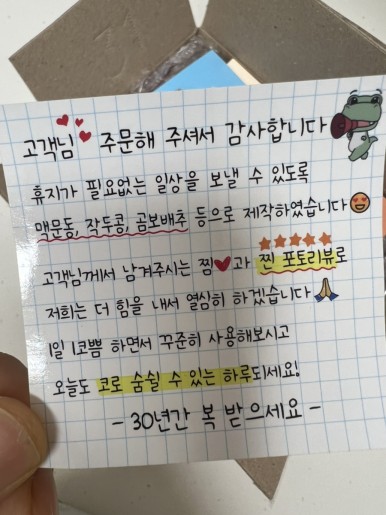 고객님 주문해 주셔서 감사합니다
휴지가 필요없는 일상을 보낼 수 있도록
맥문동, 작두콩, 곰보배추 등으로 제작하였습니다
고객님께서 남겨주시는 찜❤과 찐 포토리뷰로
저희는 더 힘을 내서 열심히 하겠습니다🙏
1일 1코쁨 하면서 꾸준히 사용해보시고
오늘도 코로 숨쉴 수 있는 하루되세요!
- 30년간 복 받으세요 -